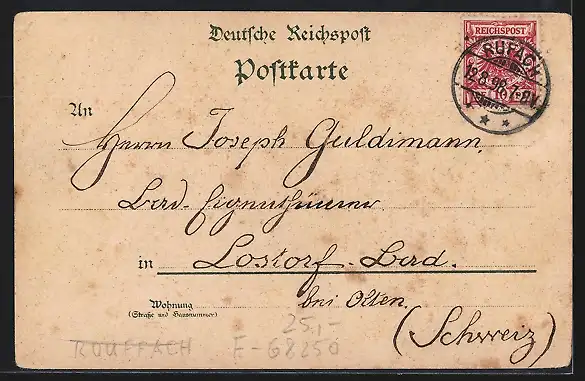 Deutsche Reichspost
Postkarte
REICHSPOST
RUFACH
12.8.96.7-8N.
10
An
Herrn Joseph Guldimann,
Bad-Eigenthümer
in Lostorf-Bad.
bei Olten.
(Schweiz)
Wohnung
(Straße und Hausnummer)
25,-
ROUFFACH F-68250